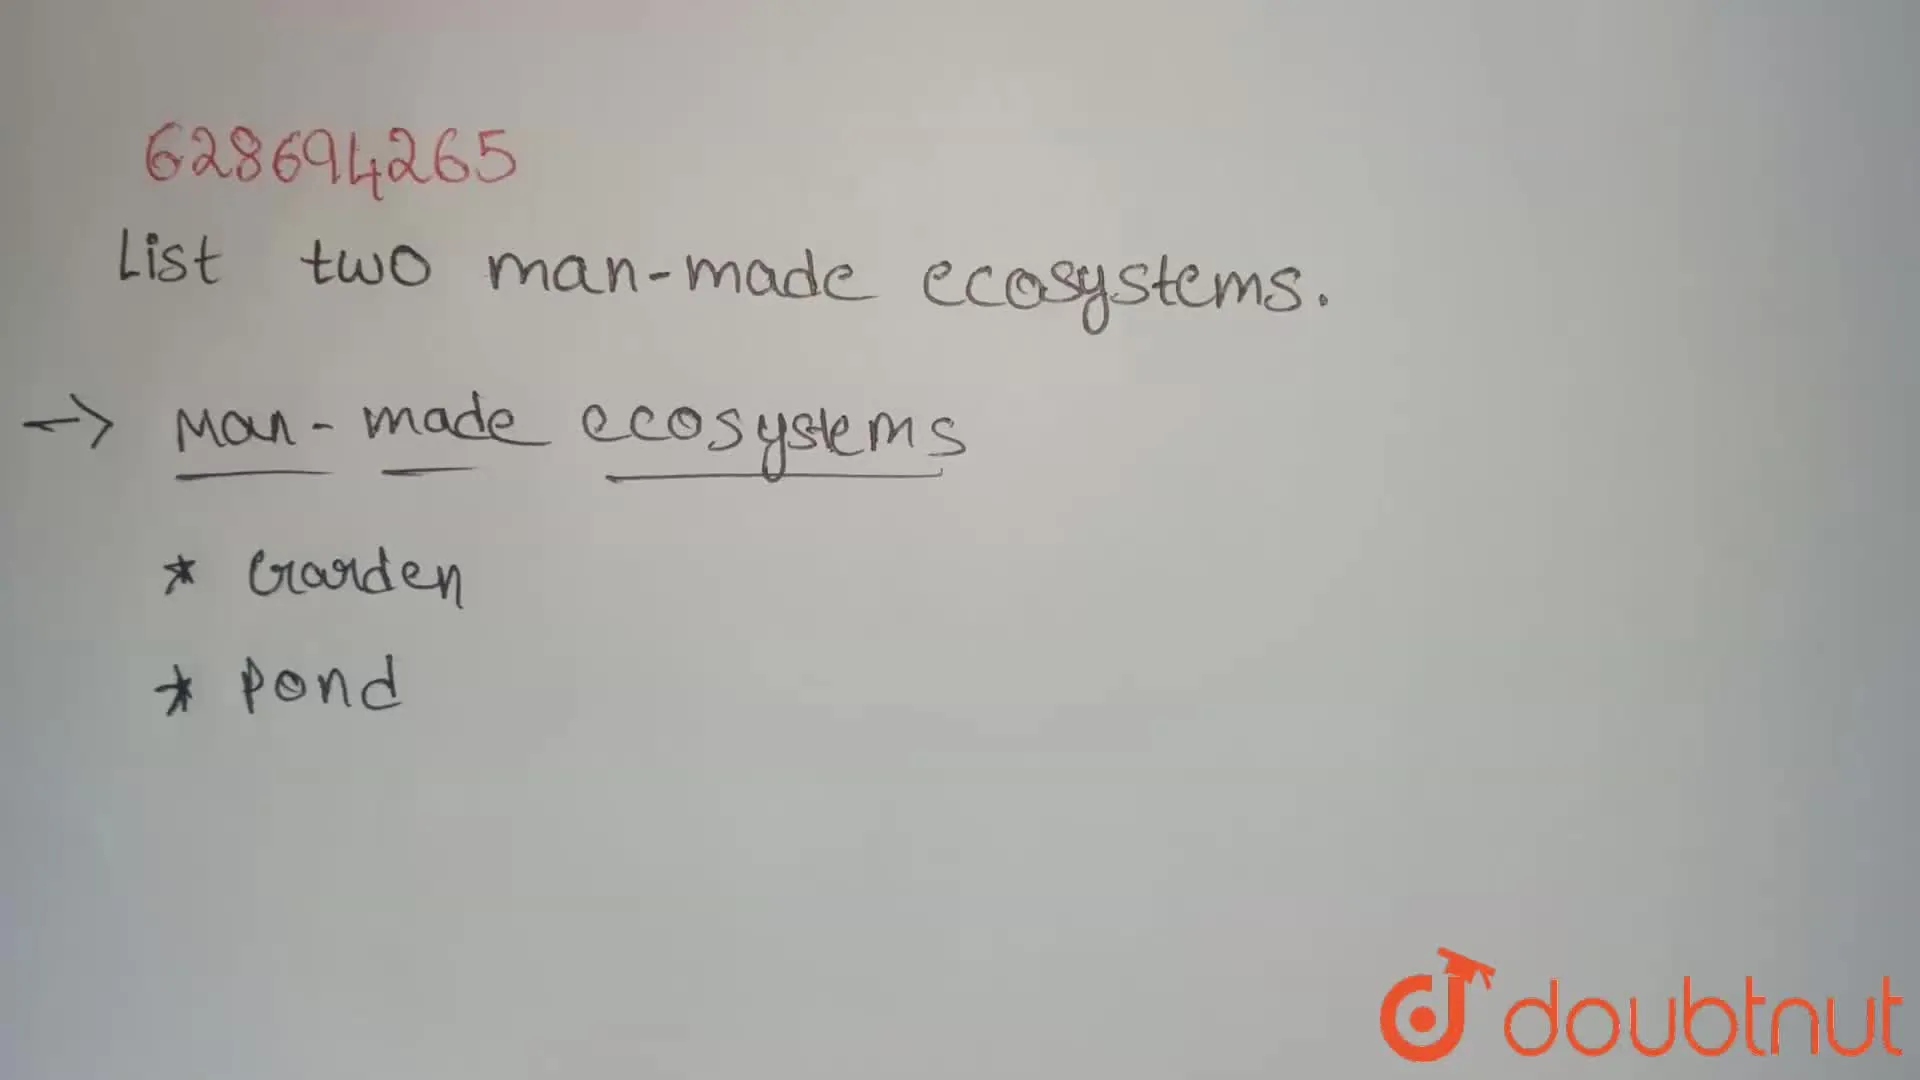 628694265
List two man-made ecosystems.
→ Man-made ecosystems
* Garden
* Pond
doubtnut